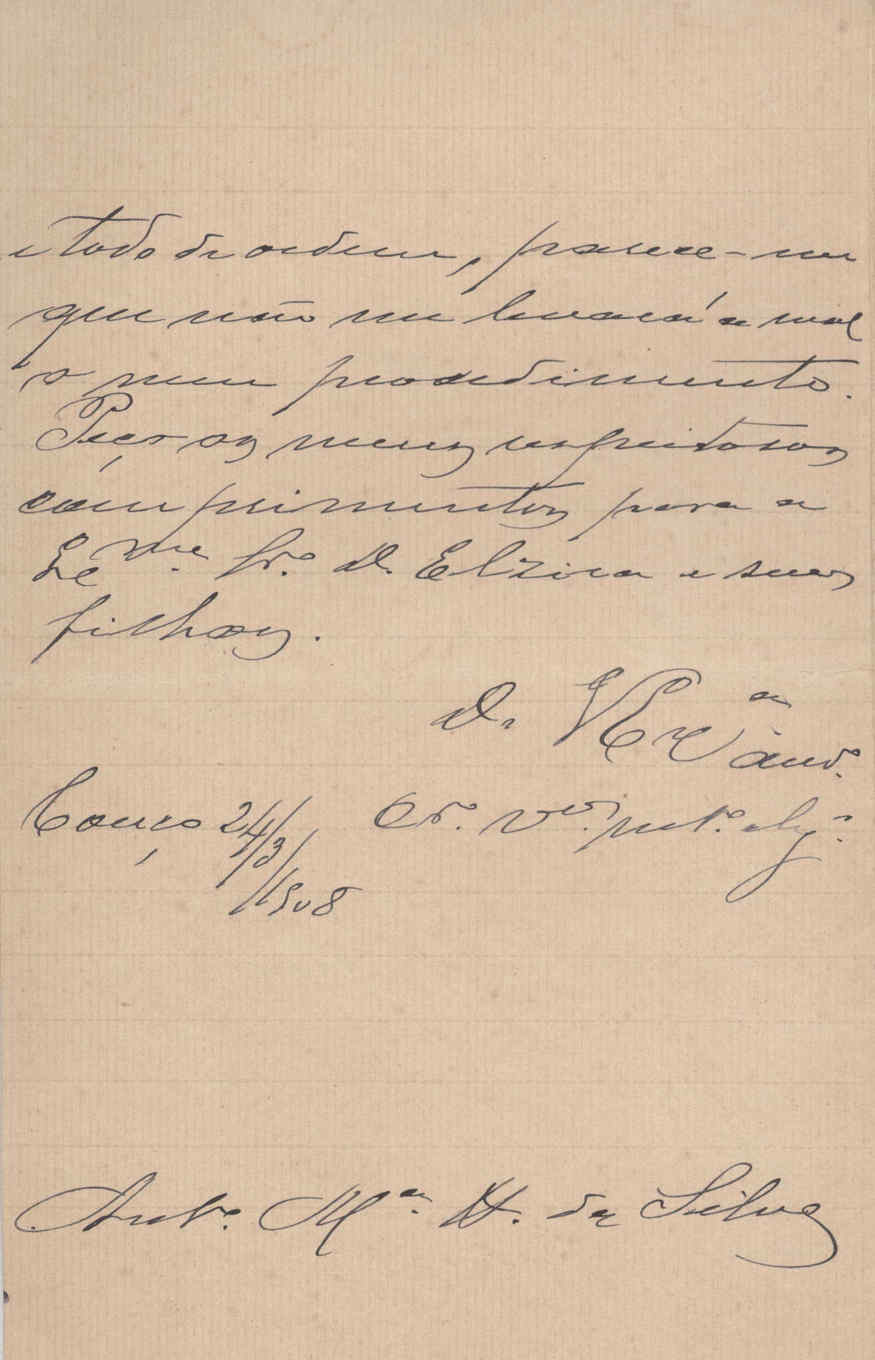 e todo de ordem, parece-me
que não me levará a mal
o meu procedimento.
Peço os meus respeitosos
comprimentos para a
Exma. Sra. D. Elzira e seus
filhos.
De V Exa
Couço 24/3/1908 Cr. Vor. mto. obgo.
Anto. Ma. H. da Silva